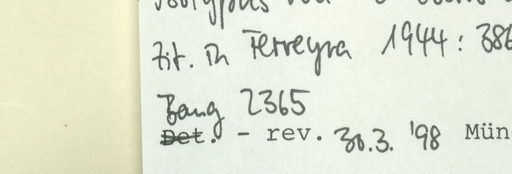 zit. in Ferreyra 1944: 386
Bang 2365
Det. - rev. 30.3. '98 Mün